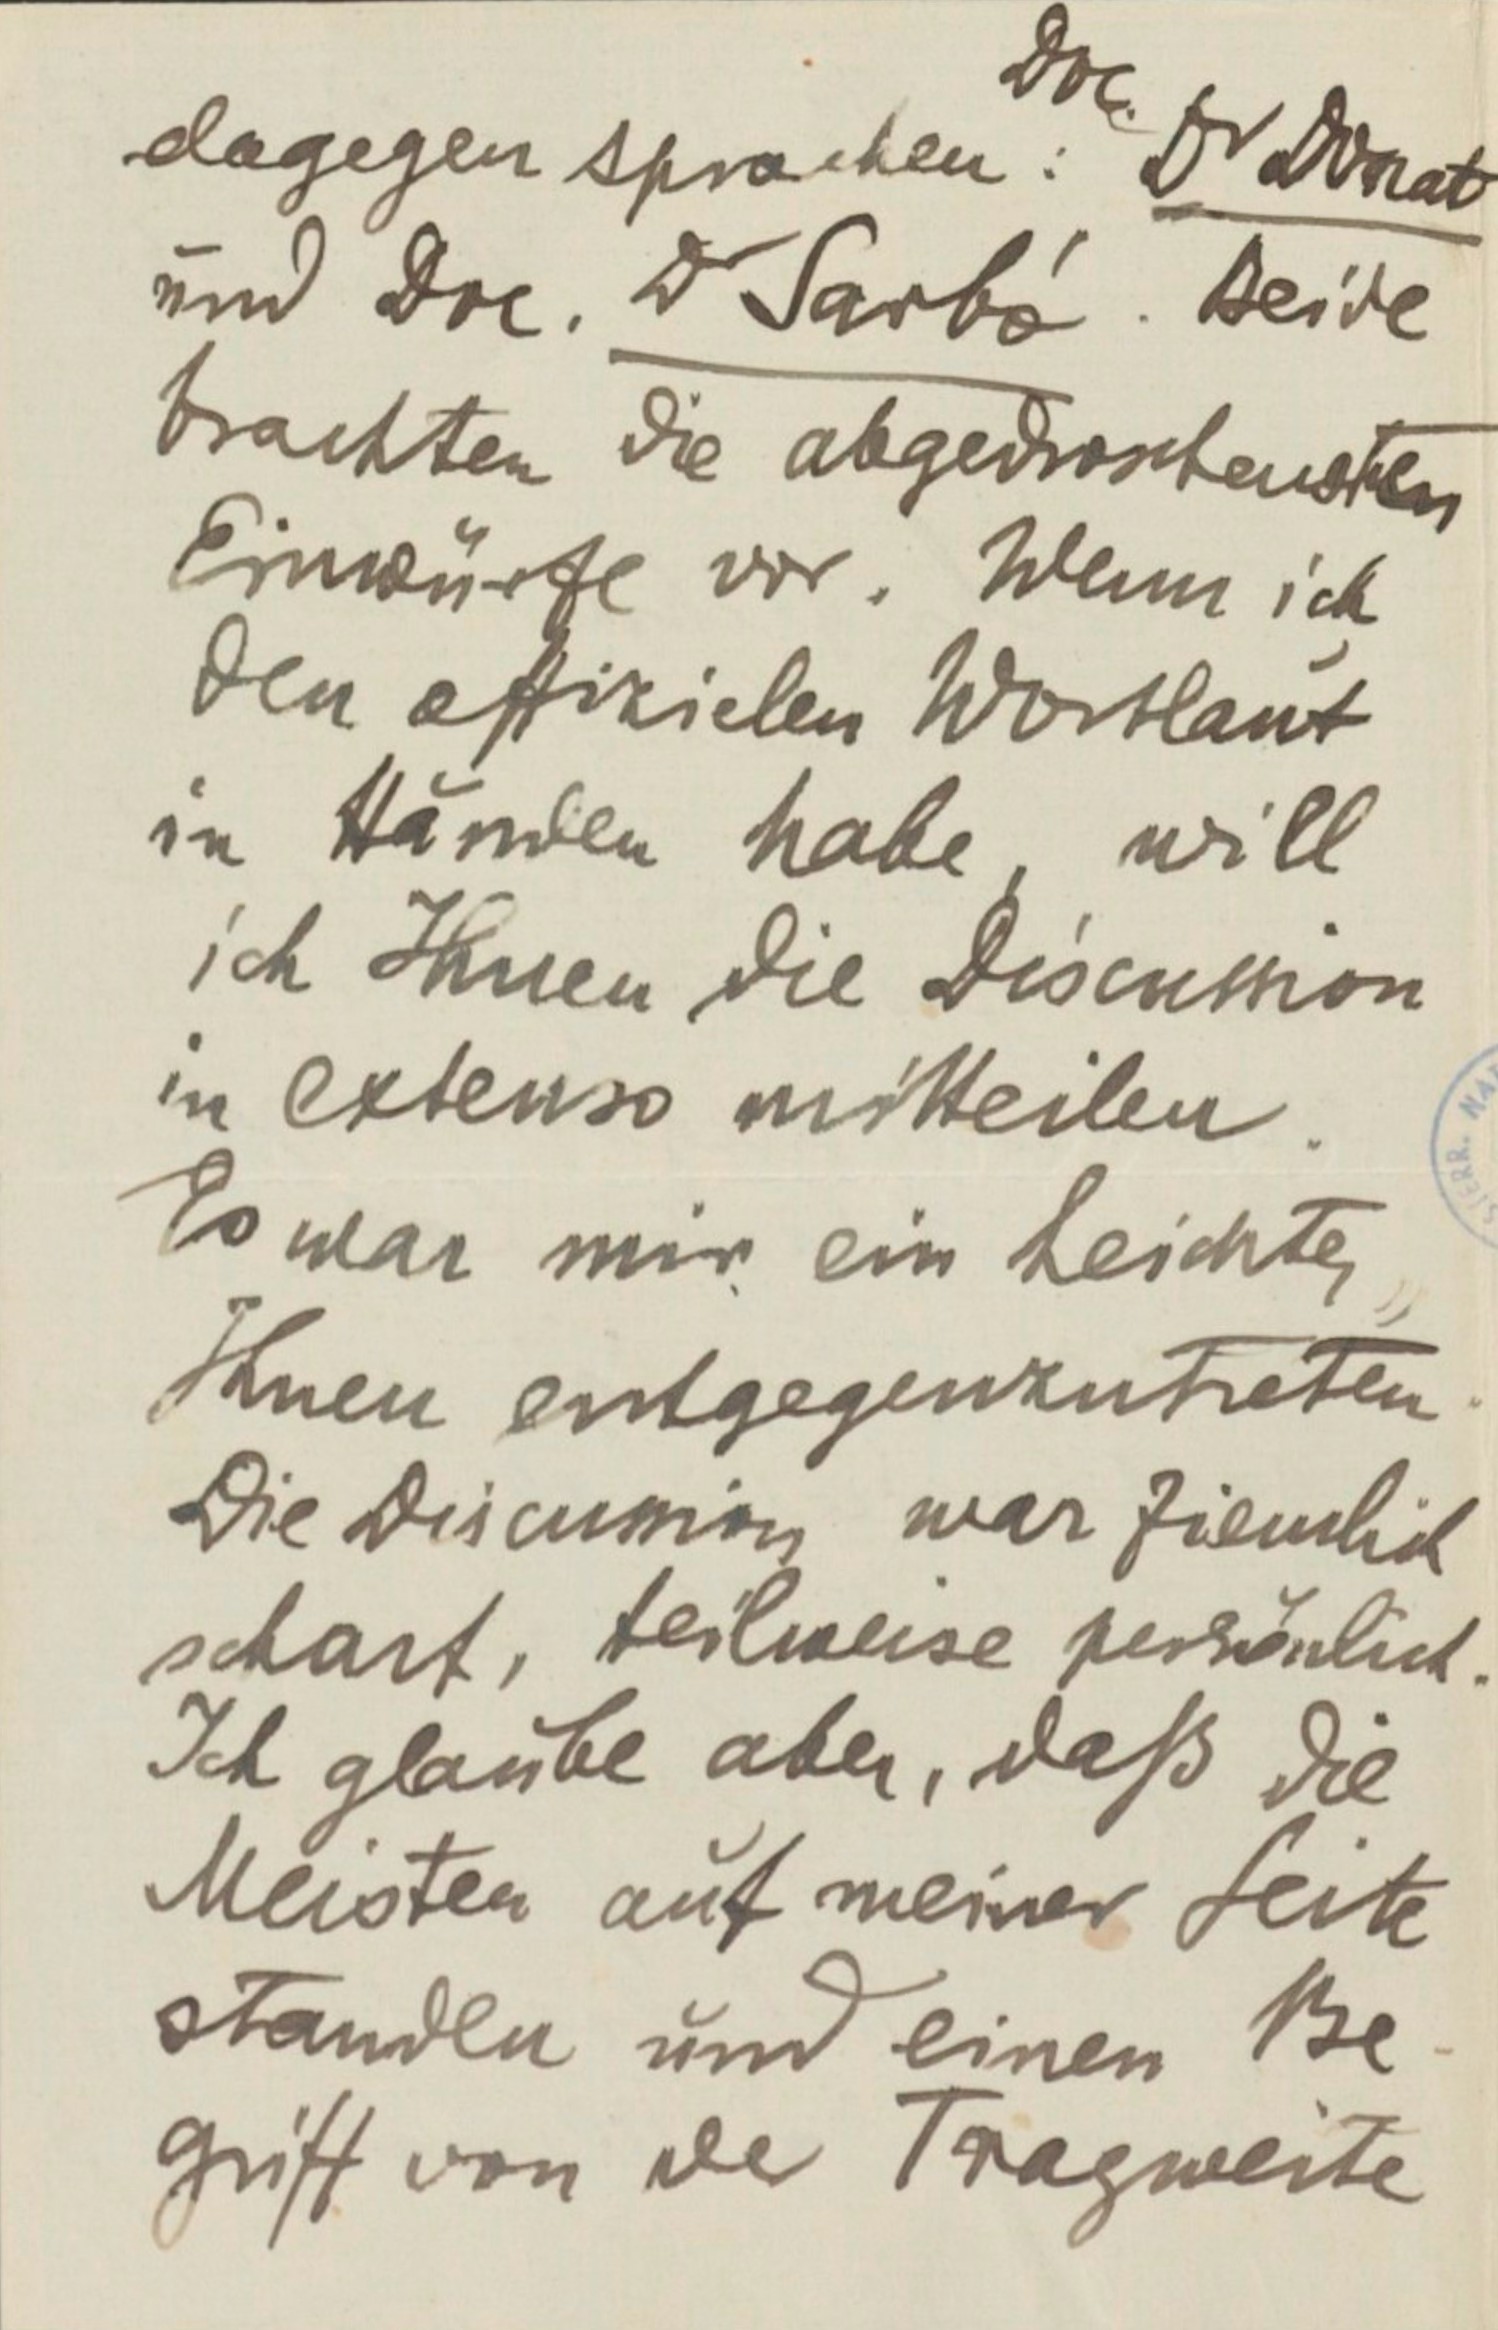 Doc.
dagegen sprachen: Dr Donat
und Doc. Dr Sarbó. Beide
brachten die abgedroschensten
Einwürfe vor. Wenn ich
den offizielen Wortlaut
in Händen habe, will
ich Ihnen die Discussion
in extenso mitteilen.
Es war mir ein Leichtes,
Ihnen entgegenzutreten.
Die Discussion war ziemlich
scharf, teilweise persönlich.
Ich glaube aber, daß die
Meisten auf meiner Seite
standen und einen Be-
griff von der Tragweite